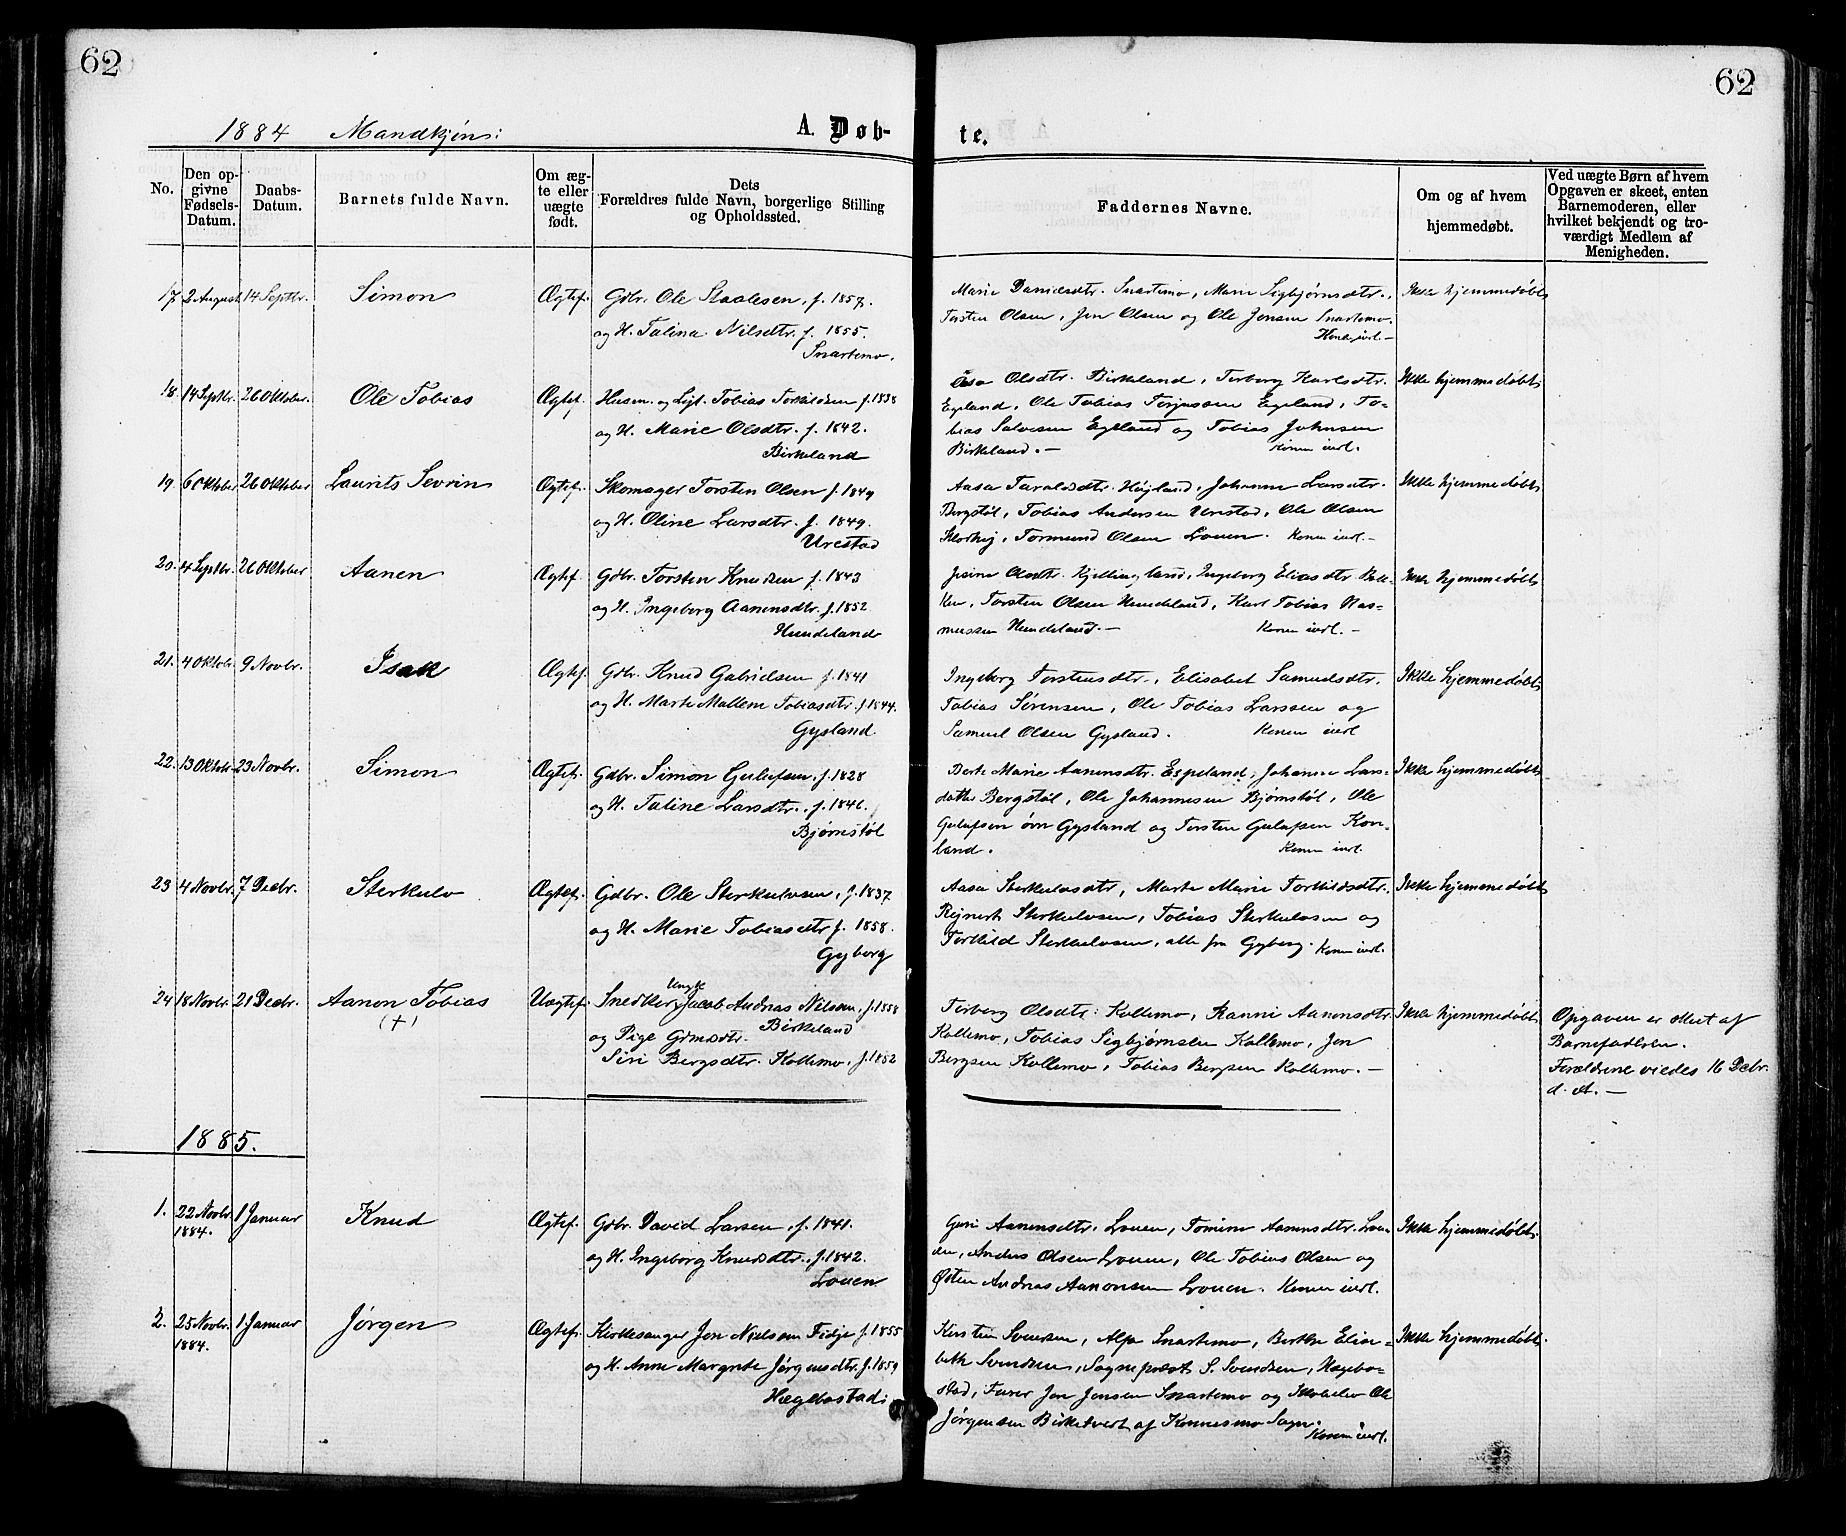 62
62
1884 Mandkjøn:
A. Døb-
te.
No.
Den op-
givne
Fødsels-
Datum.
Daabs-
Datum.
Barnets fulde Navn.
Om æg-
te eller
uægte
født.
Dets
Forældres fulde Navn, borgerlige Stilling
og Opholdssted.
Faddernes Navne.
Om og af hvem
hjemmedøbt.
Ved uægte Børn af hvem
Opgaven er skeet, enten
Barnemoderen, eller
hvilket bekjendt og tro-
værdigt Medlem af
Menigheden.
17. 2 August 14 Septbr. Simon Ægtef. Gdbr. Ole Staalesen, f. 1857.
og H. Talina Nilsdtr. f. 1855.
Snartemo.
Marie Danielsdtr. Snartemo, Marie Sigbjørnsdtr.,
Torsten Olsen, Jon Olsen og Ole Jensen Snartemo.
Konen indl. —
Ikke hjemmedøbt
18. 14 Septbr. 26 Oktober. Ole Tobias Ægtef. Husm. og Lgt. Tobias Torkildsen f. 1838
og H. Marie Olsdtr. f. 1842.
Birkeland
Åsa Olsdtr. Birkeland, Terberg Karlsdtr.
Egeland, Ole Tobias Terjussen Egeland, To-
bias Salvesen Egeland og Tobias Johnsen
Birkeland. — Konen indl.
Ikke hjemmedøbt
19. 6 Oktober 26 Oktober Laurits Sevrin Ægtef. Skomager Torsten Olsen f. 1849
og H. Oline Larsdtr. f. 1849.
Urestad
Aasa Taraldsdtr. Højland, Johanne Larsdtr.
Bergstøl, Tobias Andersen Urestad, Ole Olsen
Tormund Olsen Louen. Konen indl. —
Ikke hjemmedøbt
20. 4 Septbr. 26 Oktober Aanen Ægtef. Gdbr. Torsten Knudsen f. 1843
og H. Ingeborg Aanensdtr. f. 1852.
Hundeland
Jesine Olsdtr. Kjellingland, Ingeborg Eliasdtr. Bak-
ken, Torsten Olsen Hundeland, Karl Tobias Ras-
mussen Hundeland. — Konen indl. —
Ikke hjemmedøbt
21. 4 Oktobr. 9 Novbr. Isak Ægtef. Gdbr. Knud Gabrielsen f. 1841
og H. Marte Mallene Tobiasdtr. f. 1844.
Gysland
Ingeborg Torstensdtr., Elisabet Samuelsdtr.
Tobias Sørensen, Ole Tobias Larssen og
Samuel Olsen Gysland. Konen indl
Ikke hjemmedøbt
22. 13 Oktobr. 23 Novbr. Simon Ægtef. Gdbr. Simon Gulufsen, f. 1828
og H. Taline Larsdtr., f. 1846.
Bjørnstøl
Berte Marie Aanensdtr. Espeland, Johanne Lars-
datter Bergstøl, Ole Johannesen Bjørnstøl, Ole
Gulufsen øvn Gysland og Torsten Gulufsen Kon-
land. Konen indl.
Ikke hjemmedøbt
23 4 Novbr. 7 Decbr. Sterkulv Ægtef. Gdbr. Ole Sterkulvsen, f. 1837
og H. Marie Tobiasdtr f. 1858.
Gyberg
Aasa Sterkulvsdtr, Marte Marie Torkildsdtr.
Rejnert Sterkulvsen, Tobias Sterkulvsen og
Torkild Sterkulvsen, alle fra Gyberg. Konen indl.
Ikke hjemmedøbt
24 18 Novbr. 21 Decbr. Aanon Tobias
(†)
Uægtef. Snedker, Ungk. Jacob Andreas Nilsen, f. 1858
Birkeland
og Pige Grmdsdtr.
Siri Bergsdtr. Kollemo, f. 1852
Terberg Olsdtr. Kollemo, Ranni Aanensdtr.
Kollemo, Tobias Sigbjørnsen Kollemo, Jon
Bergsen Kollemo, Tobias Bergsen Kollemo. —
Ikke hjemmedøbt
Opgaven er skeet af
Barnefaderen.
Forældrene viedes 16 Decbr.
d. A. —
1885.
1. 22 Novbr.
1884. 1 Januar Knud Ægtef. Gdbr. David Larsen, f. 1841.
og H. Ingeborg Knudsdtr., f. 1842.
Louen
Guri Aanensdtr. Louen, Tomine Aanensdtr. Lou-
en, Anders Olsen Louen, Ole Tobias Olsen og
Østen Andreas Aanonsen Louen. Konen indl.
Ikke hjemmedøbt.
2. 25 Novbr.
1884. 1 Januar Jørgen Ægtef. Kirkesanger Jon Nielsen Fidje f. 1855
og H. Anne Margrete Jørgensdtr. f. 1859
Hægebostad
Kirsten Svensen, Alfa Snartemo, Berthe Elisa-
beth Svendsen, Sognepræst S. Svendsen, Hægebo-
stad, Furer Jon Jensen Snartemo og Skolelev Ole
Jørgensen Birketveit af Konnesmo Sogn.
Konen indl.
Ikke hjemmedøbt.